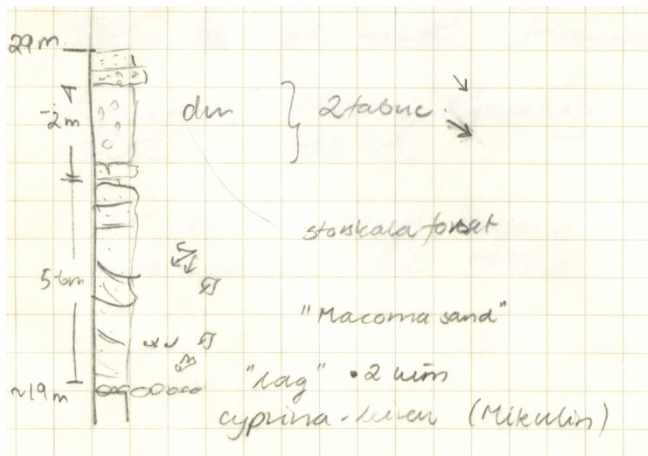 29 m.
~2m
dm } 2 fabric.
storskala forset
5-6m
"Macoma sand"
~19 m
"lag" • 2
cyprina-leiren (Mikulin)